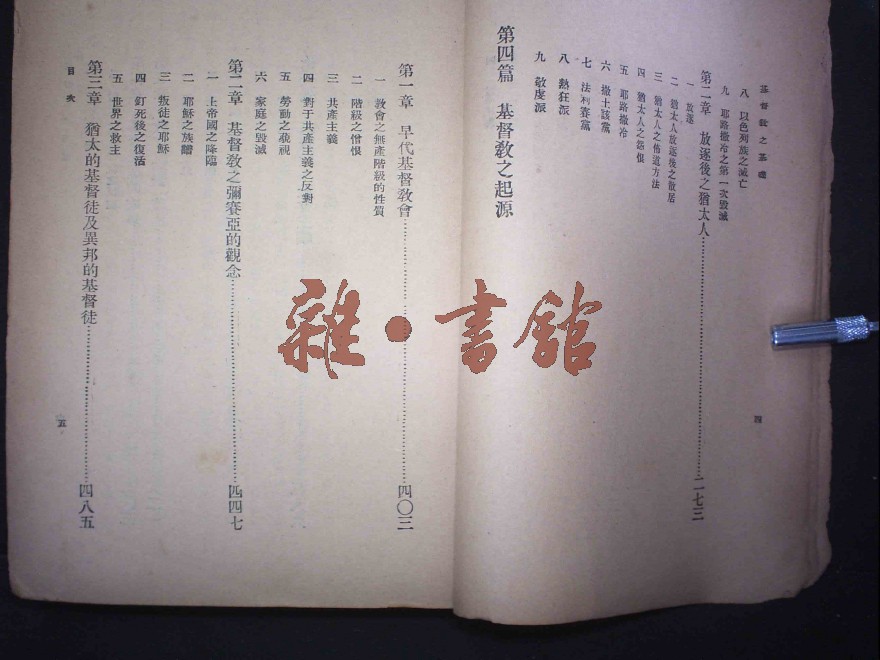 基督教之基礎
八 以色列族之滅亡
九 耶路撒冷之第一次毀滅
第二章 放逐後之猶太人……二七三
一 放逐
二 猶太人放逐後之散居
三 猶太人之佈道方法
四 猶太人之怨恨
五 耶路撒冷
六 撒土該黨
七 法利賽黨
八 熱狂派
九 敬虔派
第四篇 基督教之起源
四
第一章 早代基督教會……四〇三
一 教會之無產階級的性質
二 階級之憎恨
三 共產主義
四 對于共產主義之反對
五 勞動之藐視
六 家庭之毀滅
第二章 基督教之彌賽亞的觀念……四四七
一 上帝國之降臨
二 耶穌之族譜
三 叛徒之耶穌
四 釘死後之復活
五 世界之救主
第三章 猶太的基督徒及異邦的基督徒……四八五
目次
五
雜·書館